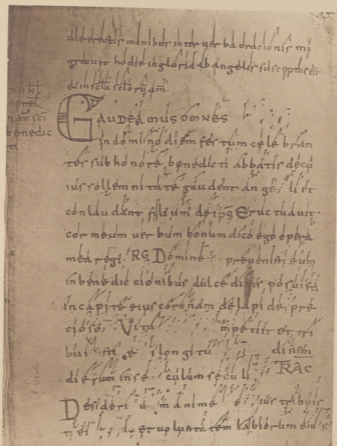 manibus inter verba orationis mi
gravit hodie in gloria ab angelis susceptus
GAUDEAMUS OMNES
in domino diem festum celebran
tes sub honore benedicti abbatis de cu
ius sollemnitate gaudent angeli et
conlaudant filium dei ps Eructuavit
cor meum verbum bonum dico ego opera
mea regi RG Domine prevenisti eum
in benedictionibus dulcedinis posuisti
in capite eius coronam de lapide pre
cioso V Vita petiit et tri
buisti ei longitu dinem
dierum in seculum seculi TRAC
Desiderium anime eius tribuis
ti ei et voluntatem labiorum eius